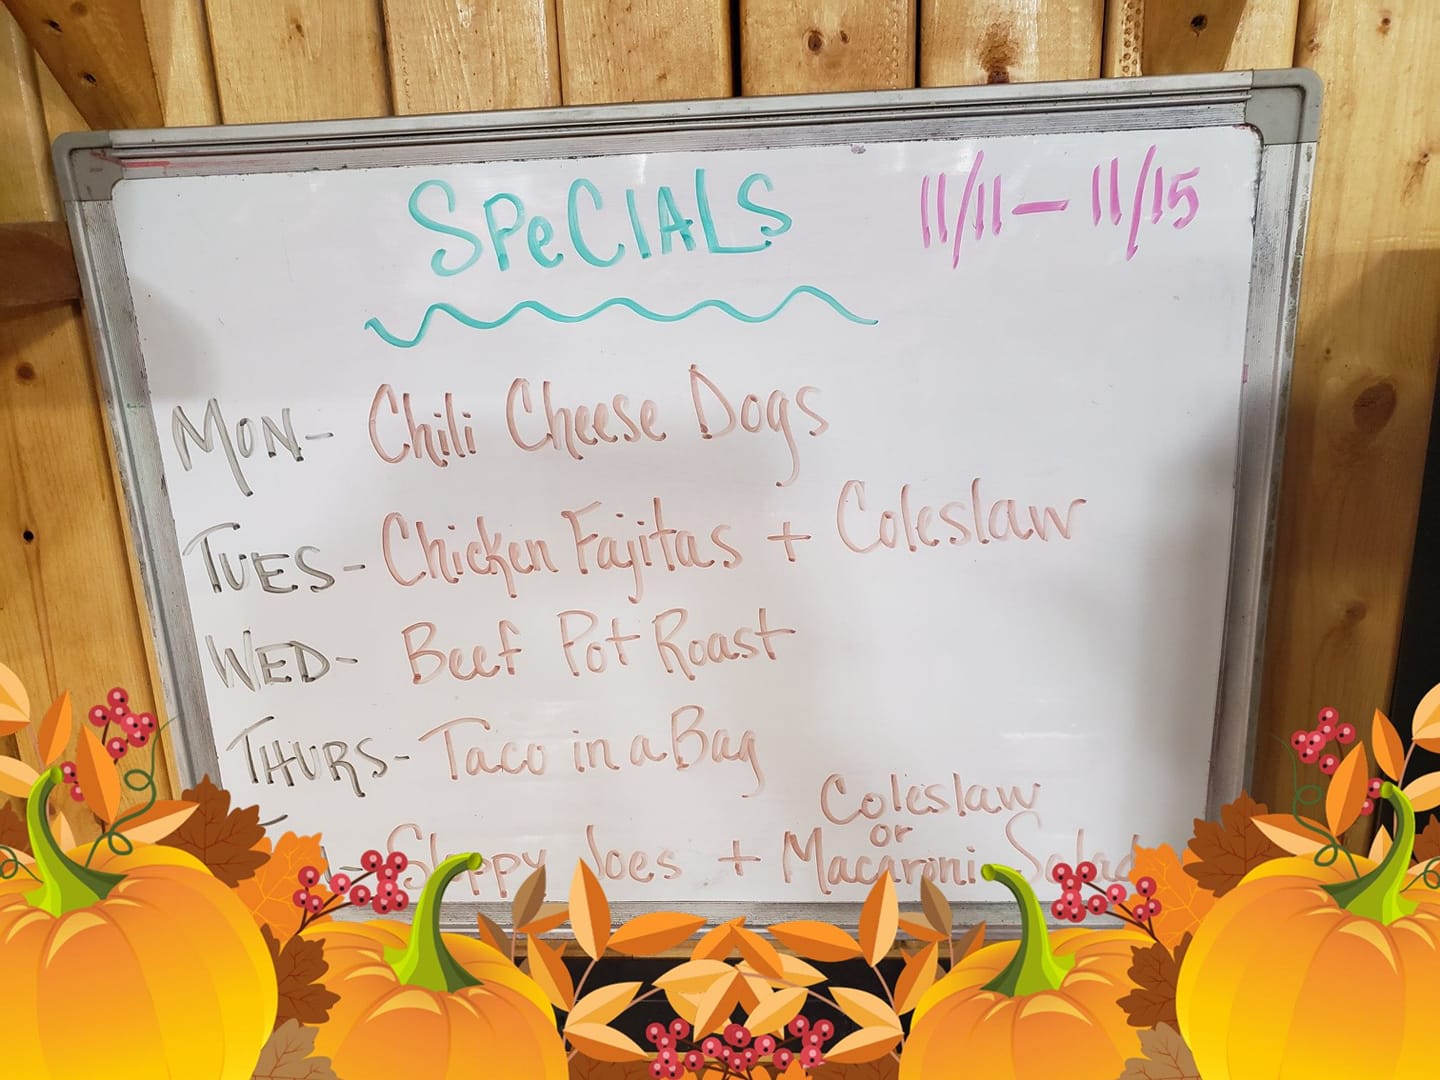 SPeCIALS 11/11 - 11/15
MON- Chili Cheese Dogs
TUES- Chicken Fajitas + Coleslaw
WED- Beef Pot Roast
THURS- Taco in a Bag
Sloppy Joes + Coleslaw
or
Macaroni Salad